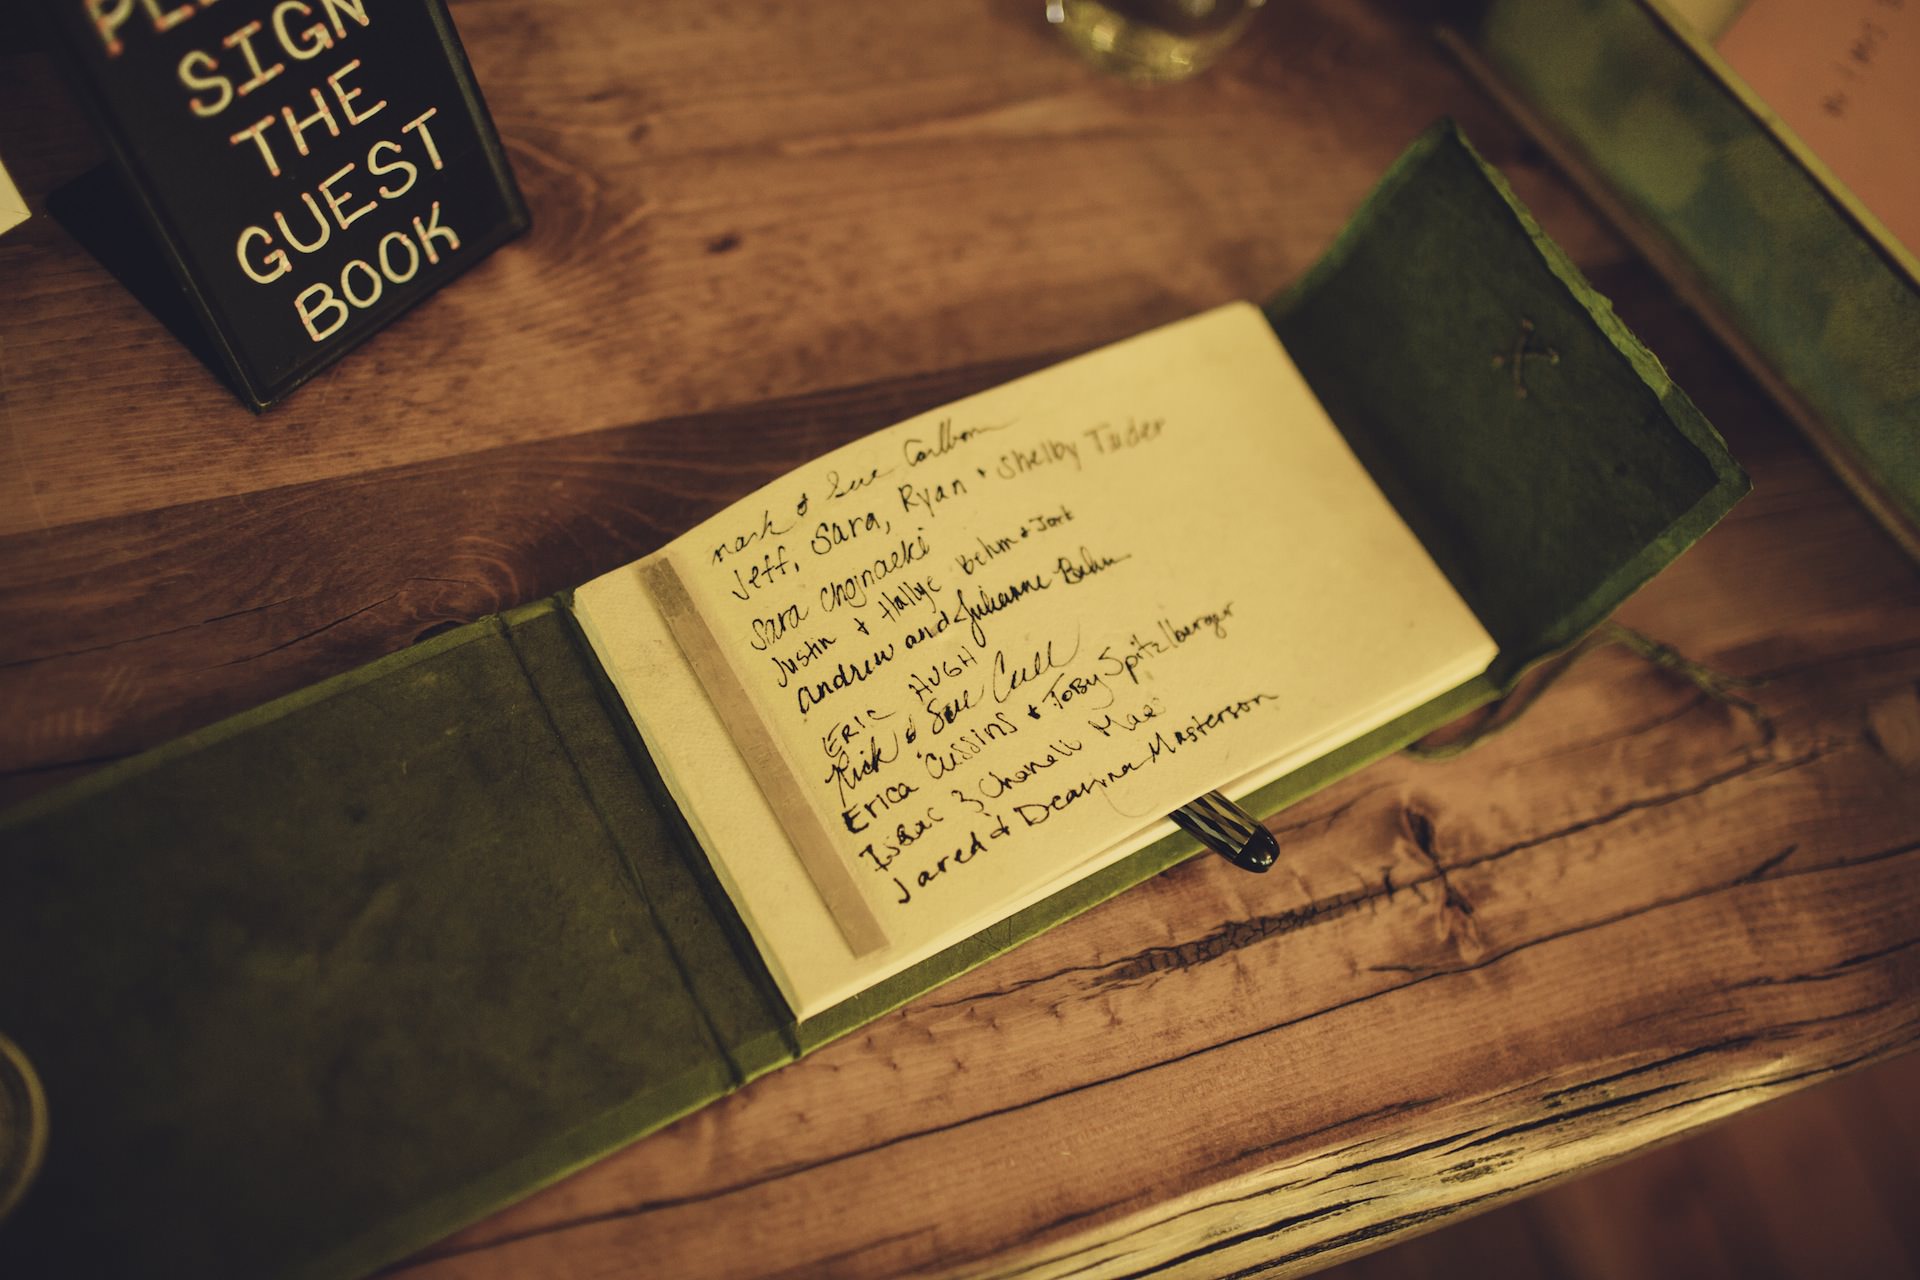 SIGN
THE
GUEST
BOOK
Mark & Sue
Jeff, Sara, Ryan + Shelby Tuder
Sara Chojnacki
Justin + Hallye Behm + Jack
Andrew and Julianne Behm
Eric Hugh
Rick & Sue Cull
Erica Cussins + Toby Spitzlberger
Isaac & Chanell Mae
Jared & Deanna Masterson